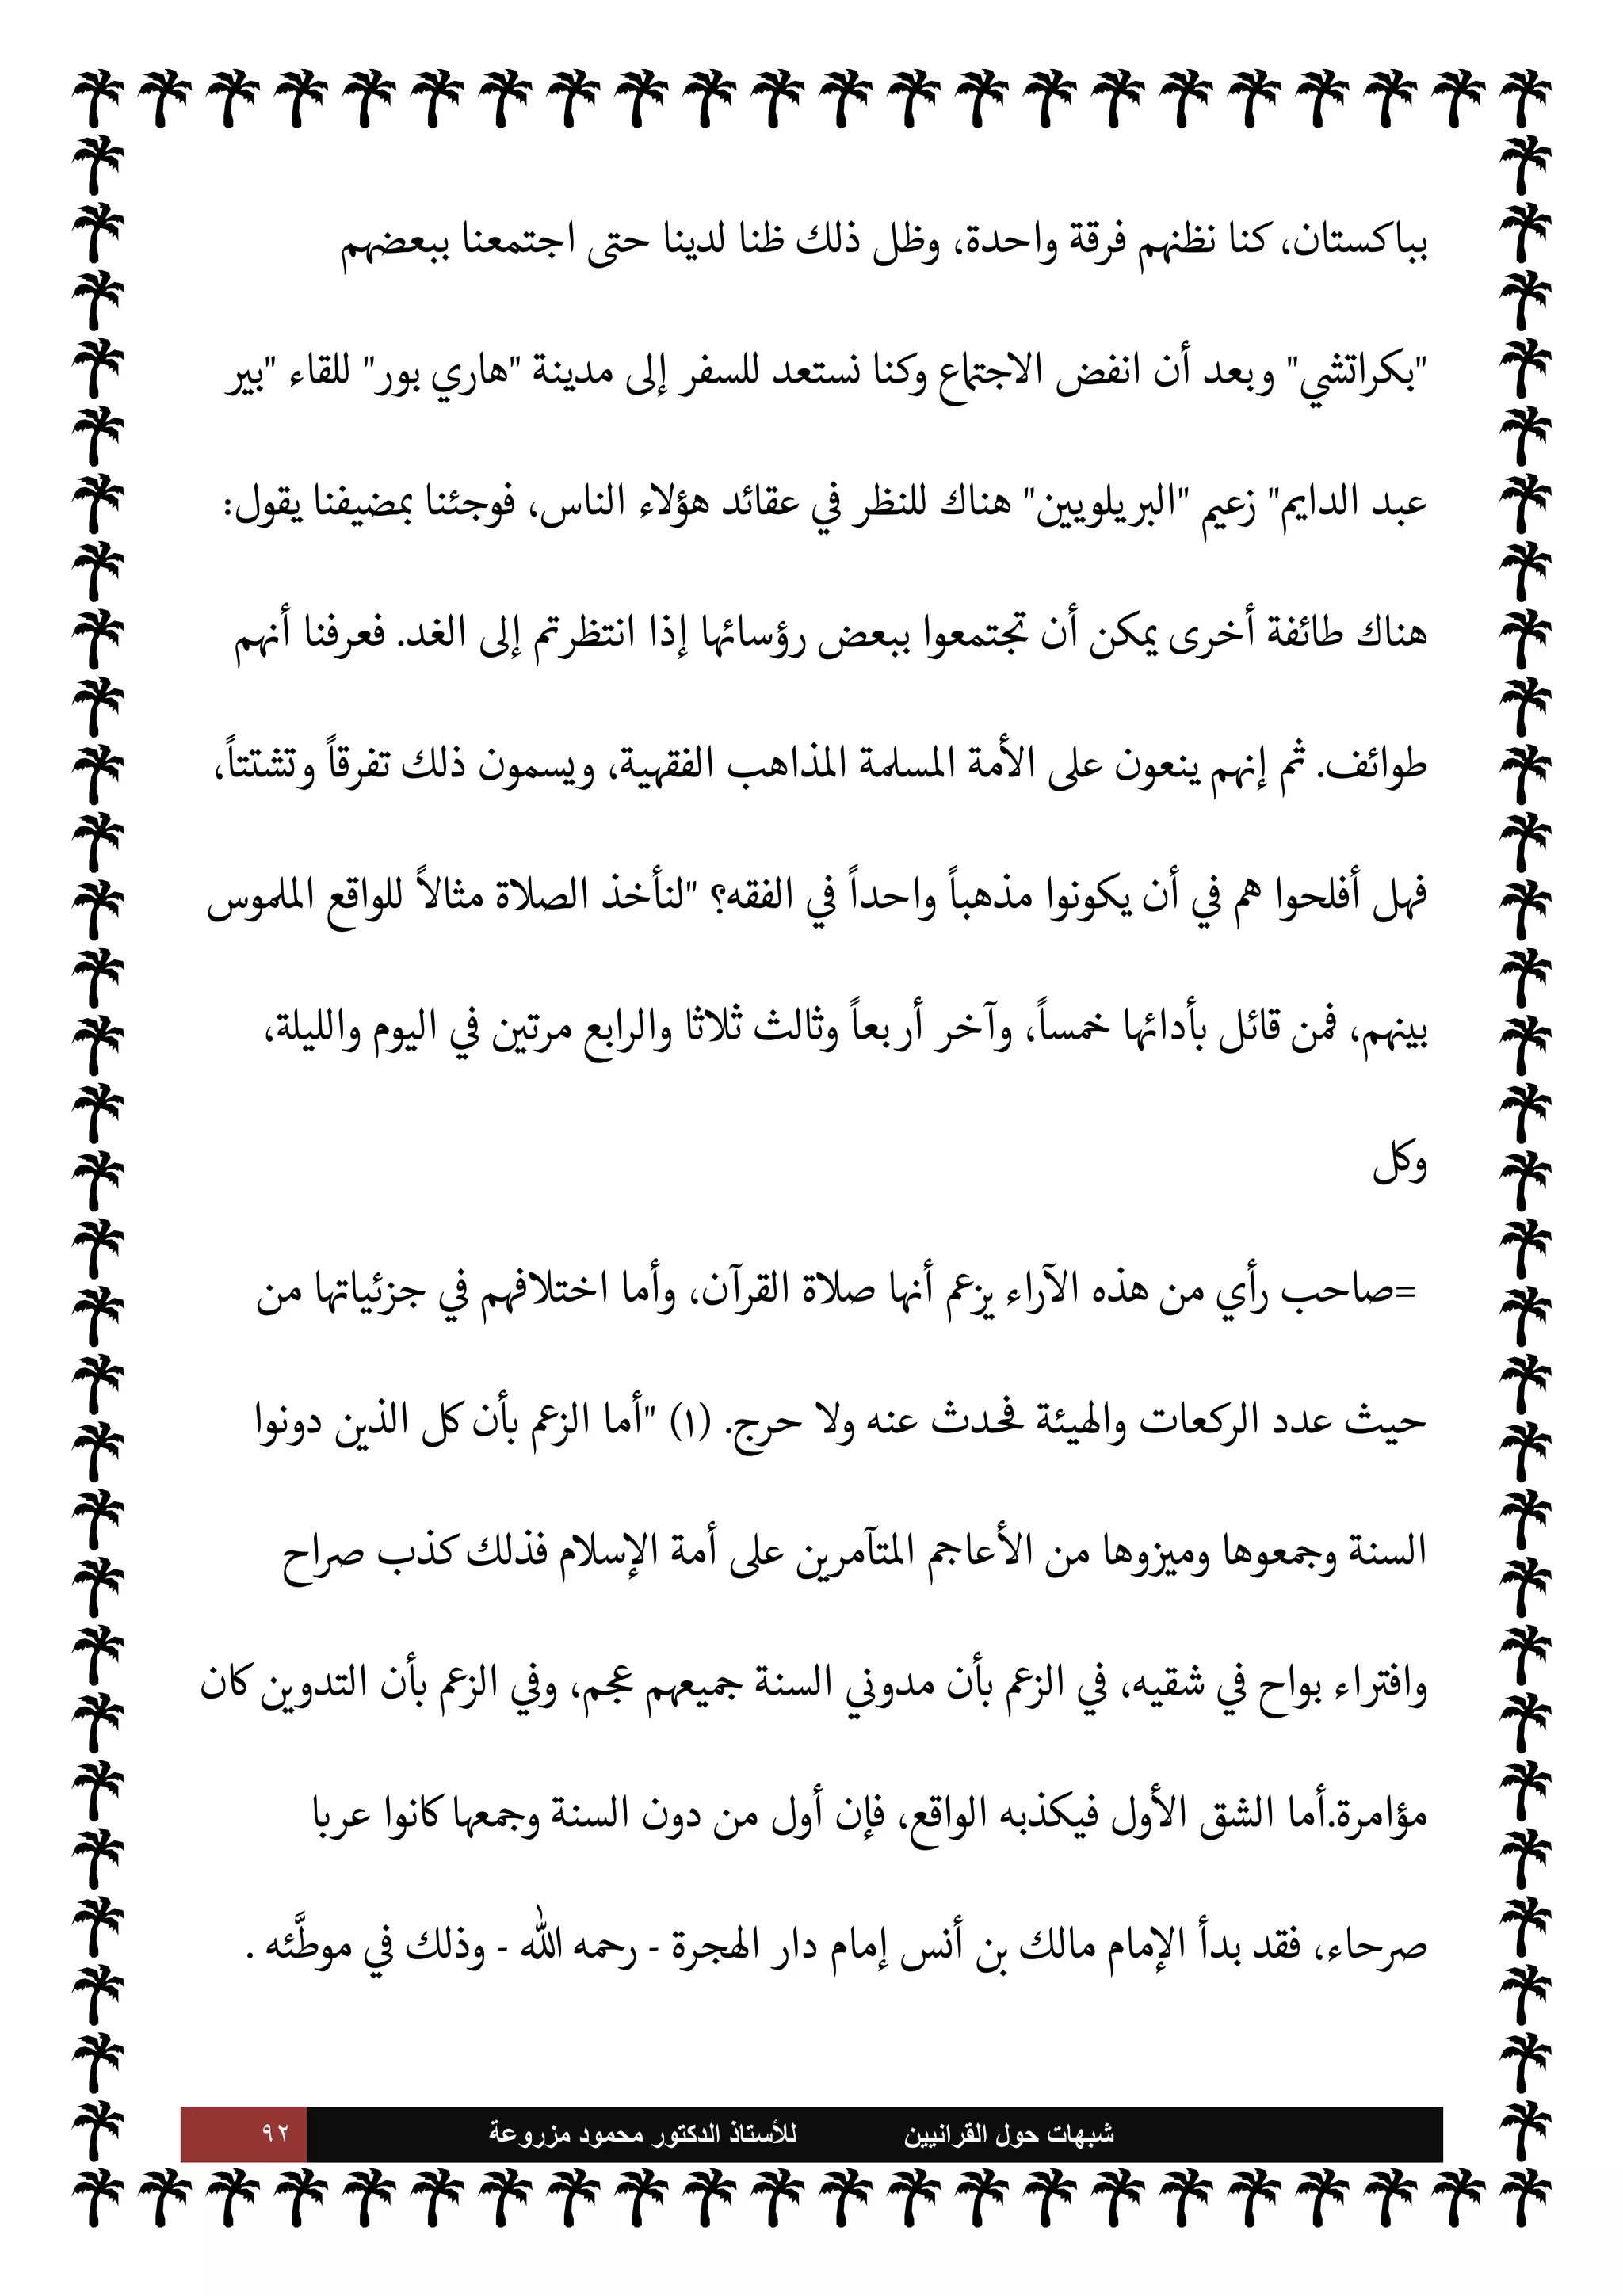 بباكستان، كنا نظنهم فرقة واحدة، وظل ذلك ظنا لدينا حتى اجتمعنا ببعضهم
"بكراتشي" وبعد أن انفض الاجتماع وكنا نستعد للسفر إلى مدينة "هاري بور" للقاء "بير
عبد الدايم" زعيم "البريلويين" هناك للنظر في عقائد هؤلاء الناس، فوجئنا بمضيفنا يقول:
هناك طائفة أخرى يمكن أن تجتمعوا ببعض رؤسائها إذا انتظرتم إلى الغد. فعرفنا أنهم
طوائف. ثم إنهم ينعون على الأمة المسلمة المذاهب الفقهية، ويسمون ذلك تفرقاً وتشتتاً،
فهل أفلحوا هم في أن يكونوا مذهباً واحداً في الفقه؟ "لنأخذ الصلاة مثالاً للواقع الملموس
بينهم، فمن قائل بأدائها خمساً، وآخر أربعاً وثالث ثلاثا والرابع مرتين في اليوم والليلة،
وكل
=صاحب رأي من هذه الآراء يزعم أنها صلاة القرآن، وأما اختلافهم في جزئياتها من
حيث عدد الركعات والهيئة فحدث عنه ولا حرج. (١) "أما الزعم بأن كل الذين دونوا
السنة وجمعوها وميزوها من الأعاجم المتآمرين على أمة الإسلام فذلك كذب صراح
وافتراء بواح في شقيه، في الزعم بأن مدوني السنة جميعهم عجم، وفي الزعم بأن التدوين كان
مؤامرة.أما الشق الأول فيكذبه الواقع، فإن أول من دون السنة وجمعها كانوا عربا
صرحاء، فقد بدأ الإمام مالك بن أنس إمام دار الهجرة - رحمه الله - وذلك في موطَّئه .
شبهات حول القرانيين للأستاذ الدكتور محمود مزروعة ٩٢